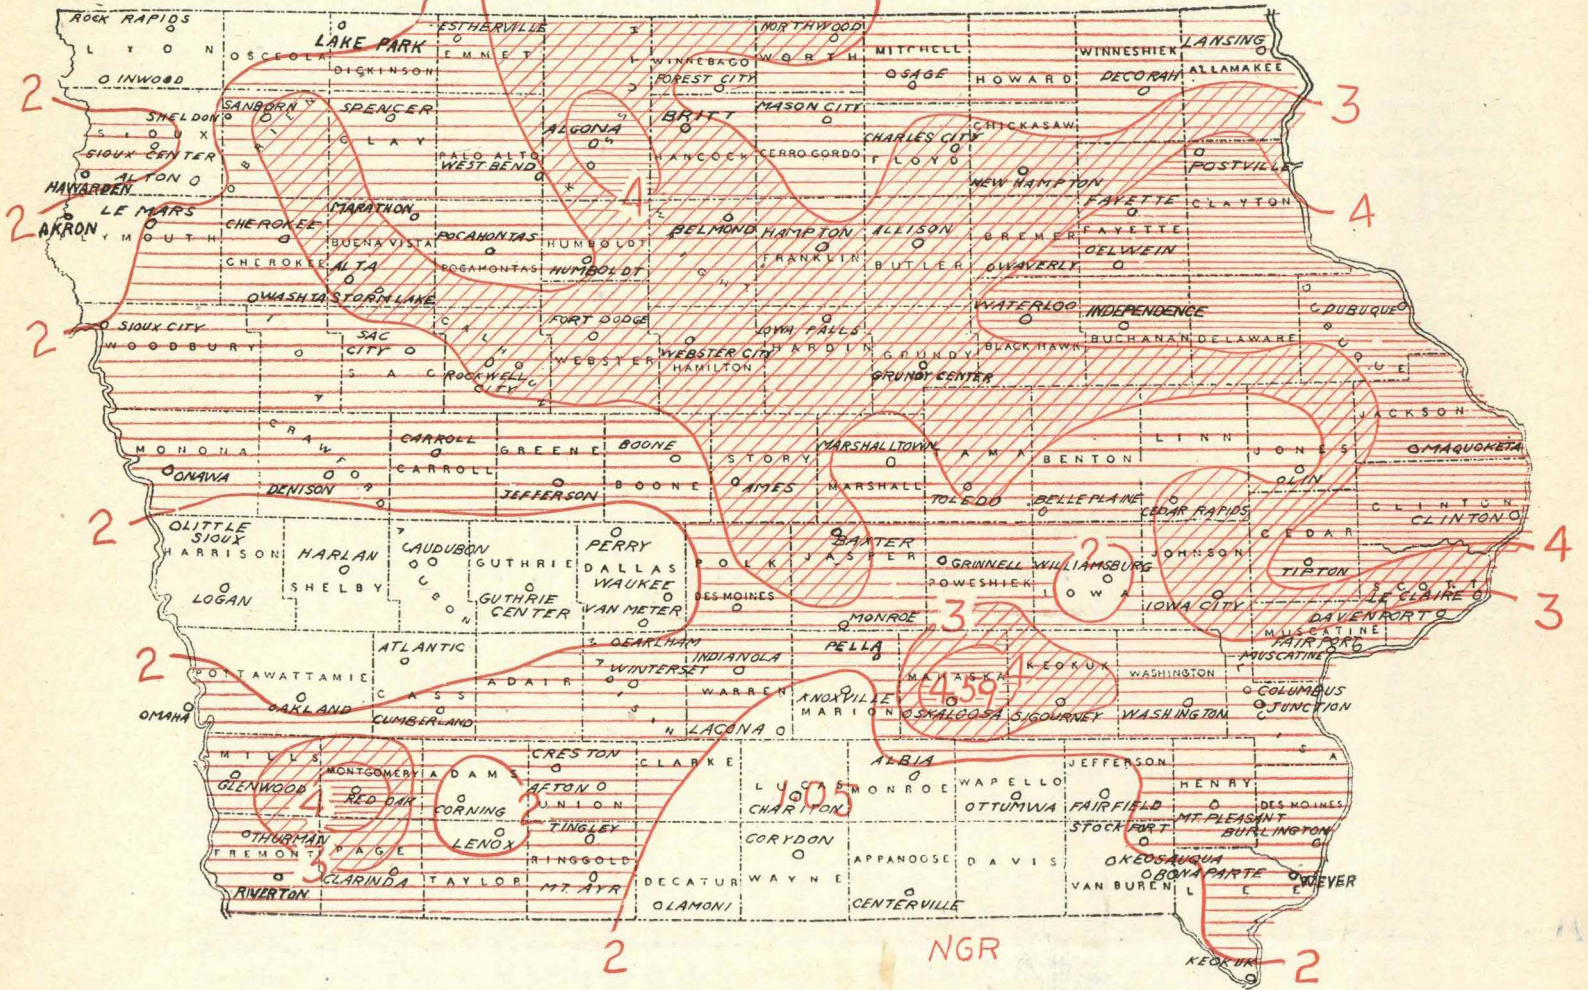 ROCK RAPIDS
LYON
OSCEOLA
LAKE PARK
DICKINSON
ESTHERVILLE
EMMET
WINNEBAGO
FOREST CITY
NORTHWOOD
WORTH
MITCHELL
OSAGE
HOWARD
WINNESHIEK
DECORAH
LANSING
ALLAMAKEE
INWOOD
2
SHELDON
SIOUX
SIOUX CENTER
ALTON
HAWARDEN
SANBORN
O'BRIEN
SPENCER
CLAY
PALO ALTO
WEST BEND
ALGONA
KOSSUTH
4
BRITT
HANCOCK
MASON CITY
CERRO GORDO
CHARLES CITY
FLOYD
CHICKASAW
NEW HAMPTON
3
POSTVILLE
FAYETTE
CLAYTON
4
2
AKRON
LE MARS
PLYMOUTH
CHEROKEE
CHEROKEE
MARATHON
BUENA VISTA
ALTA
STORM LAKE
WASHTA
POCAHONTAS
POCAHONTAS
HUMBOLDT
HUMBOLDT
BELMOND
WRIGHT
HAMPTON
FRANKLIN
ALLISON
BUTLER
BREMER
WAVERLY
FAYETTE
OELWEIN
2
SIOUX CITY
WOODBURY
IDA
SAC CITY
SAC
CALHOUN
ROCKWELL CITY
FORT DODGE
WEBSTER
WEBSTER CITY
HAMILTON
IOWA FALLS
HARDIN
GRUNDY
GRUNDY CENTER
WATERLOO
BLACK HAWK
INDEPENDENCE
BUCHANAN
DELAWARE
DUBUQUE
DUBUQUE
MONONA
ONAWA
CRAWFORD
DENISON
CARROLL
CARROLL
GREENE
JEFFERSON
BOONE
BOONE
STORY
AMES
MARSHALLTOWN
MARSHALL
TAMA
TOLEDO
BENTON
BELLE PLAINE
LINN
CEDAR RAPIDS
JONES
OLIN
JACKSON
MAQUOKETA
CLINTON
CLINTON
2
LITTLE SIOUX
HARRISON
LOGAN
HARLAN
SHELBY
AUDUBON
AUDUBON
GUTHRIE
GUTHRIE CENTER
PERRY
DALLAS
WAUKEE
VAN METER
POLK
DES MOINES
BAXTER
JASPER
MONROE
GRINNELL
POWESHIEK
2
WILLIAMSBURG
IOWA
JOHNSON
IOWA CITY
CEDAR
TIPTON
4
SCOTT
LE CLAIRE
DAVENPORT
3
MUSCATINE
FAIRPORT
MUSCATINE
2
POTTAWATTAMIE
OAKLAND
OMAHA
ATLANTIC
CASS
CUMBERLAND
ADAIR
EARLHAM
WINTERSET
MADISON
INDIANOLA
WARREN
LACONA
PELLA
KNOXVILLE
MARION
3
MAHASKA
4.59
4
OSKALOOSA
KEOKUK
SIGOURNEY
WASHINGTON
WASHINGTON
COLUMBUS JUNCTION
LOUISA
MILLS
GLENWOOD
MONTGOMERY
4
RED OAK
ADAMS
CORNING
2
LENOX
CRESTON
AFTON
UNION
CLARKE
LUCAS
1.05
CHARITON
ALBIA
MONROE
WAPELLO
OTTUMWA
JEFFERSON
FAIRFIELD
STOCKPORT
HENRY
MT. PLEASANT
DES MOINES
BURLINGTON
THURMAN
FREMONT
3
RIVERTON
PAGE
CLARINDA
TAYLOR
TINGLEY
RINGGOLD
MT. AYR
DECATUR
LAMONI
CORYDON
WAYNE
APPANOOSE
CENTERVILLE
DAVIS
KEOSAUQUA
BONAPARTE
VAN BUREN
LEE
WEVER
2
NGR
KEOKUK
2